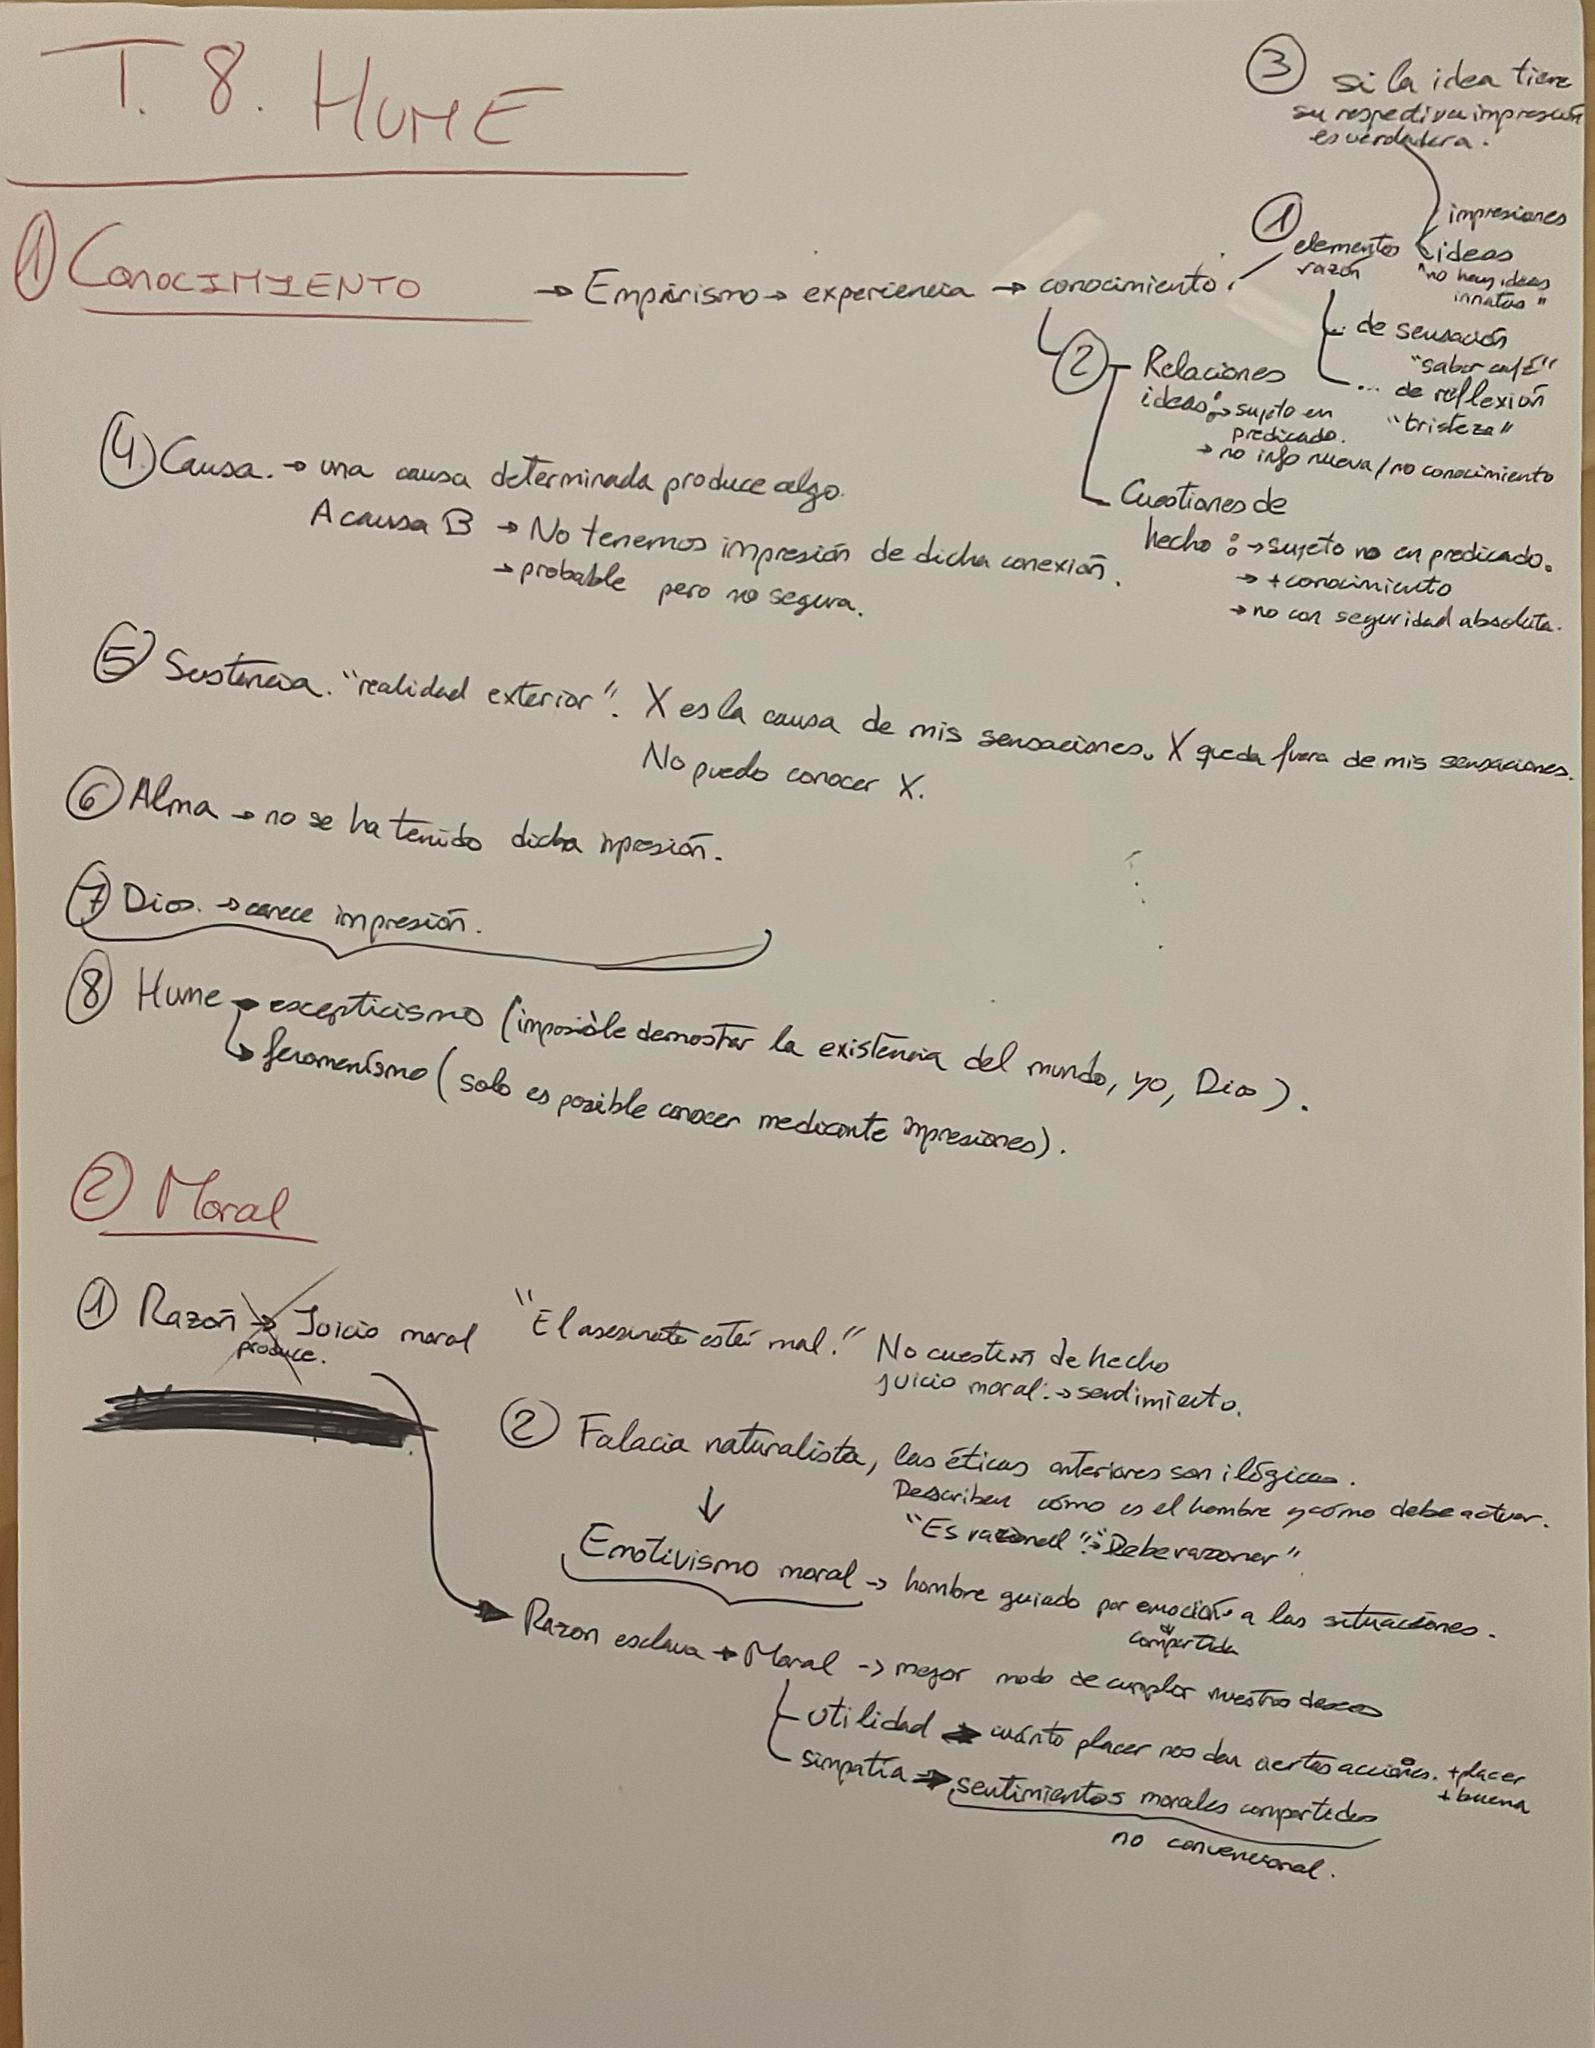 T. 8. HUME
③ si la idea tiene
su respectiva impresión
es verdadera.
① CONOCIMIENTO → Empirismo → experiencia → conocimiento.
① elementos
razón
impresiones
ideas
"no hay ideas
innatas"
... de sensación
"sabor café"
... de reflexión
"tristeza"
② Relaciones
ideas: → sujeto en
predicado.
→ no info nueva/no conocimiento
Cuestiones de
hecho: → sujeto no en predicado.
→ + conocimiento
→ no con seguridad absoluta.
④ Causa. → una causa determinada produce algo.
A causa B → No tenemos impresión de dicha conexión.
→ probable pero no segura.
⑤ Sustancia. "realidad exterior". X es la causa de mis sensaciones. X queda fuera de mis sensaciones.
No puedo conocer X.
⑥ Alma → no se ha tenido dicha impresión.
⑦ Dios. → carece impresión.
⑧ Hume → escepticismo (imposible demostrar la existencia del mundo, yo, Dios).
↳ fenomenismo (solo es posible conocer mediante impresiones).
② Moral
① Razón → Juicio moral "El asesinato está mal." No cuestión de hecho
produce.
juicio moral: → sentimiento.
② Falacia naturalista, las éticas anteriores son ilógicas.
Describen cómo es el hombre y cómo debe actuar.
"Es racional" → "Debe razonar"
↓
Emotivismo moral → hombre guiado por emoción a las situaciones.
compartida
Razon esclava → Moral → mejor modo de cumplir nuestros deseos
utilidad → cuánto placer nos dan ciertas acciones. + placer
+ buena
simpatía → sentimientos morales compartidos
no convencional.